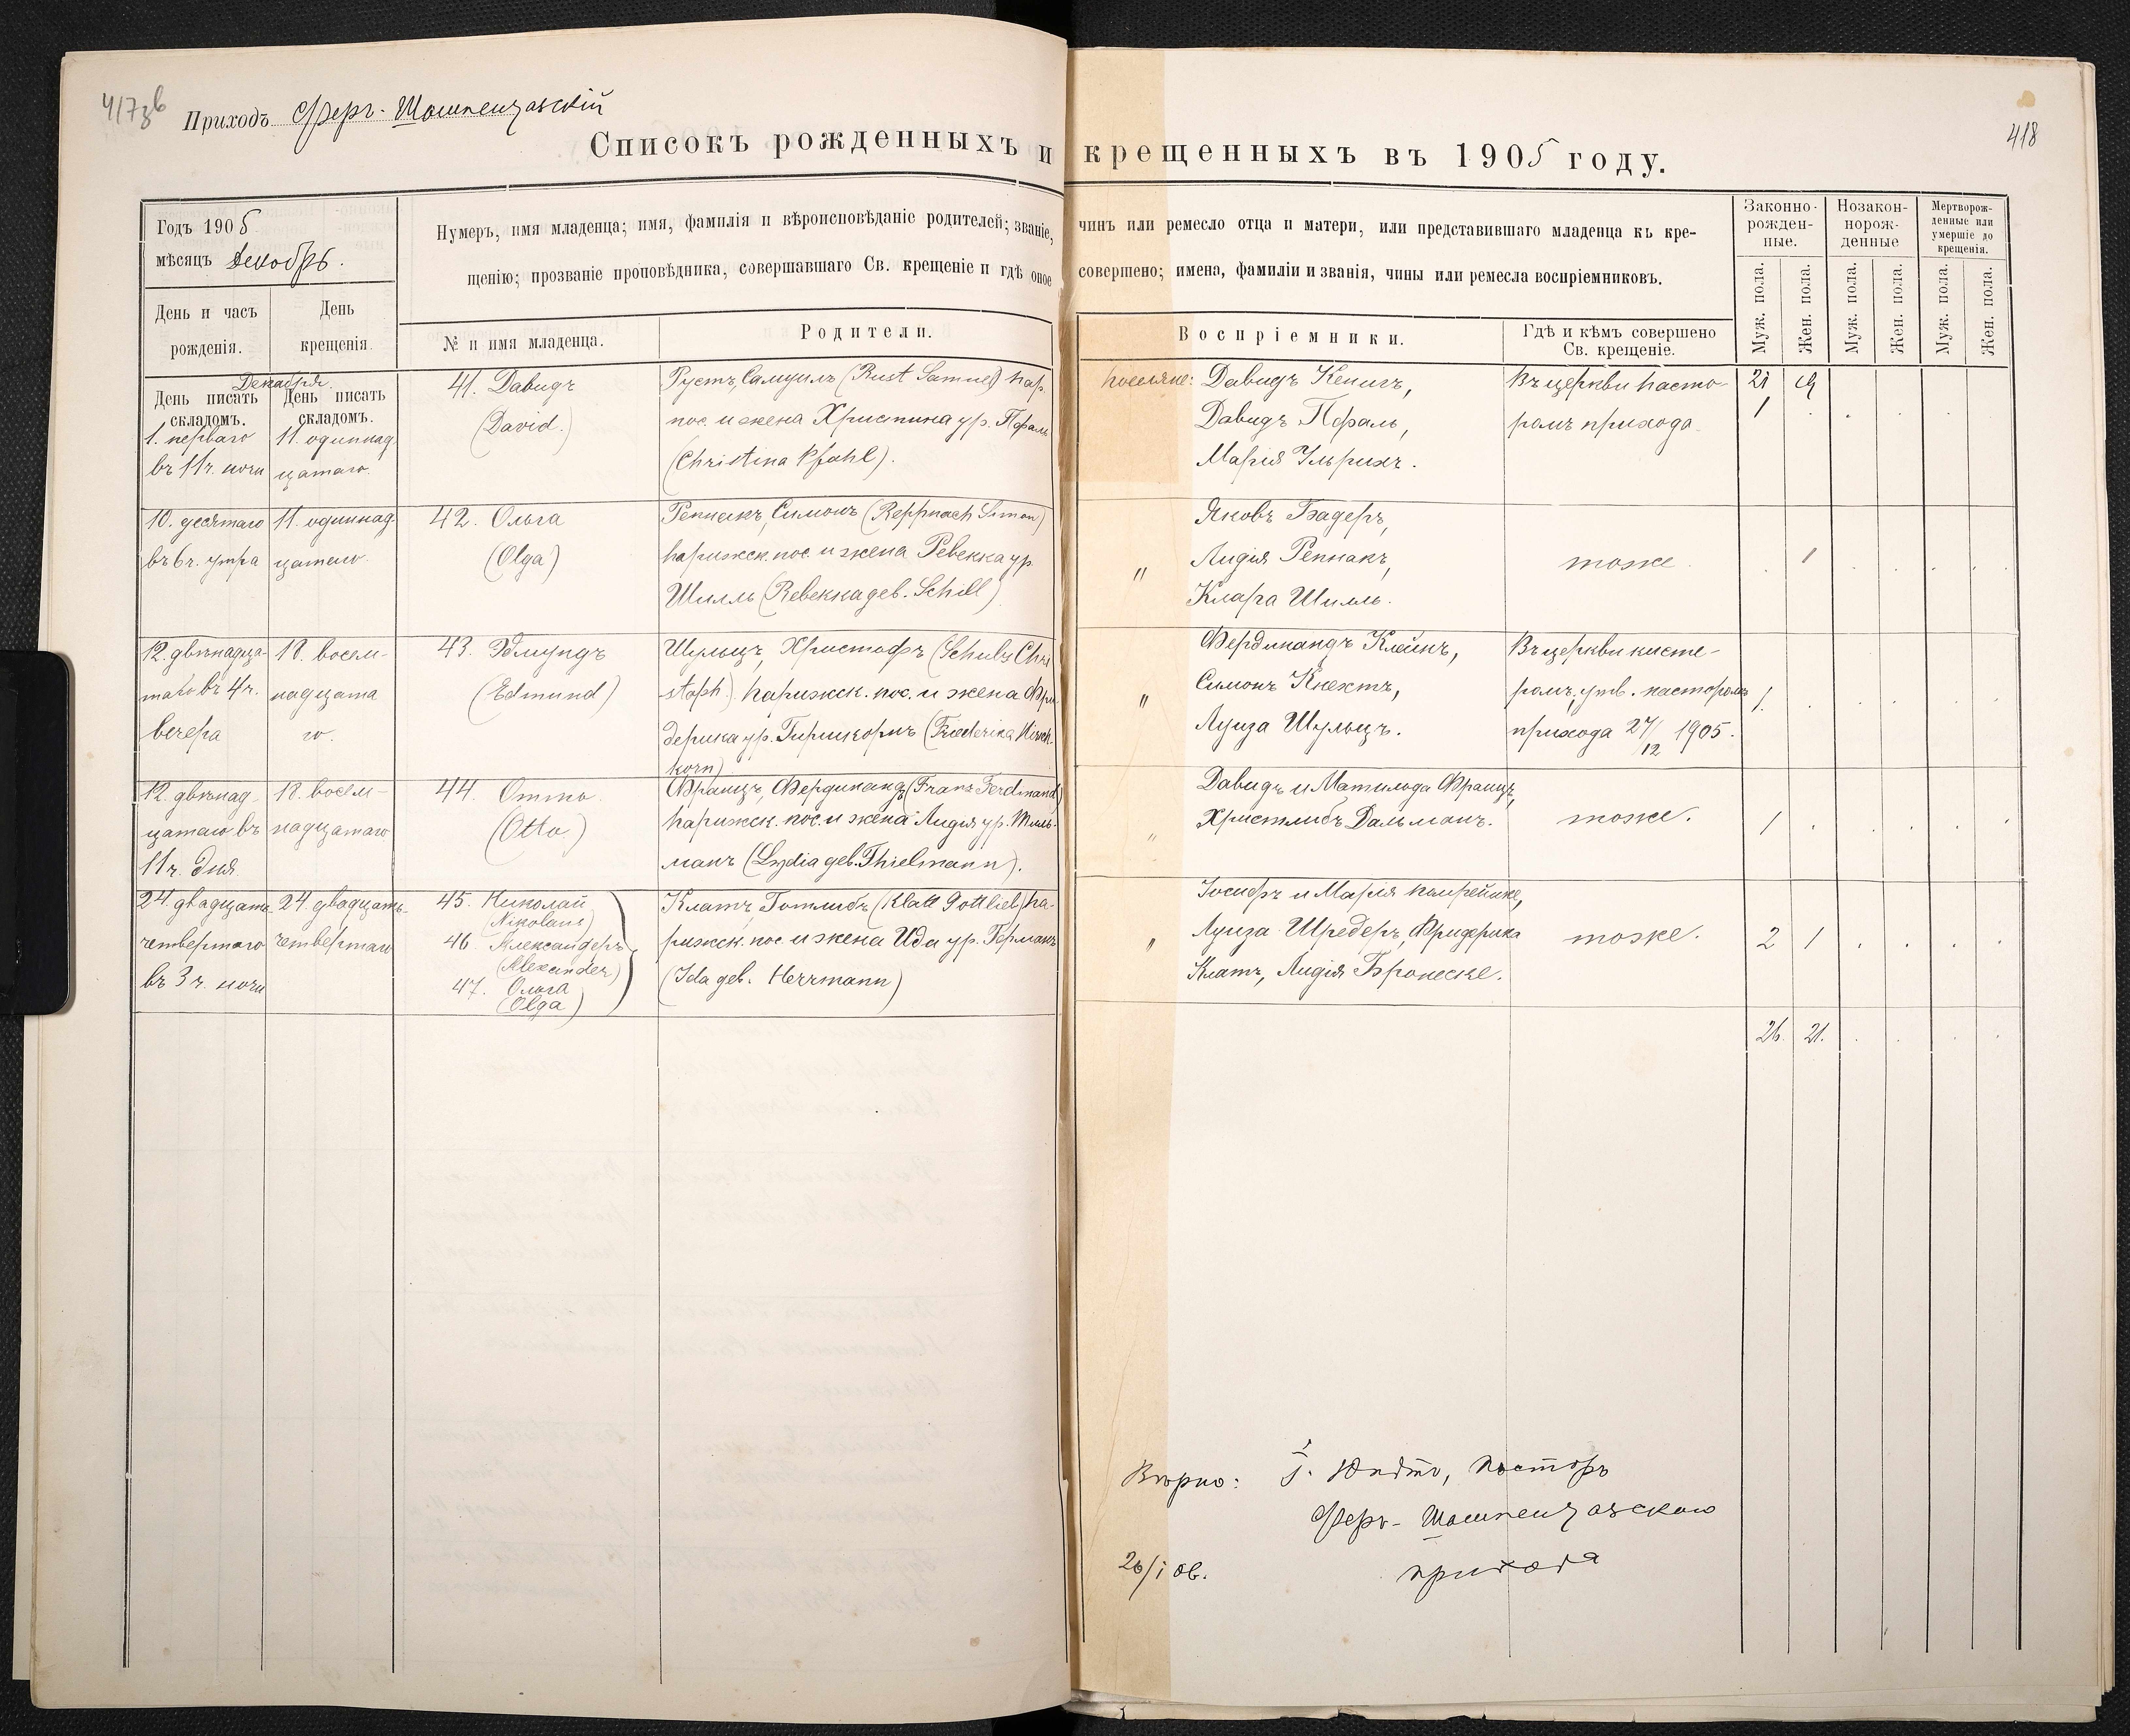 417зв
418
Приходъ Феръ-Шампенуазскій
Списокъ рожденныхъ и крещенныхъ въ 1905 году.
Годъ 1905
мѣсяцъ Декабрь.
День и часъ рожденія.
День крещенія.
Нумеръ, имя младенца; имя, фамилія и вѣроисповѣданіе родителей; званіе, чинъ или ремесло отца и матери, или представившаго младенца къ кре-
щенію; прозваніе проповѣдника, совершавшаго Св. крещеніе и гдѣ оное совершено; имена, фамиліи и званія, чины или ремесла воспріемниковъ.
№ и имя младенца.
Родители.
Воспріемники.
Гдѣ и кѣмъ совершено
Св. крещеніе.
Законно-
рожден-
ные.
Незакон-
норож-
денные
Мертворож-
денные или
умершіе до
крещенія.
Муж. пола.
Жен. пола.
Муж. пола.
Жен. пола.
Муж. пола.
Жен. пола.
Декабря.
День писать
складомъ.
День писать
складомъ.
1. перваго
въ 11 ч. ночи
11. одиннад-
цатаго.
41. Давидъ
(David.)
Рустъ, Самуилъ (Rust Samuel) пар.
пос. и жена Христина ур. Пфаль
(Christina Pfahl).
поселяне: Давидъ Кенигъ,
Давидъ Пфаль,
Марія Ульрихъ.
Въ церкви пасто-
ромъ прихода.
21
1
10. десятаго
въ 6 ч. утра
11. одиннад-
цатаго.
42. Ольга
(Olga)
Реппнакъ, Симонъ (Reppnack Simon)
парижск. пос. и жена Ревекка ур.
Шилль (Rebekka geb. Schill)
Яковъ Бадеръ,
" Лидія Реппнакъ,
Клара Шилль.
тоже.
1
12. двѣнадца-
таго въ 4 ч.
вечера
18. восем-
надцата
го.
43. Эдмундъ
(Edmund)
Шульцъ, Христофъ (Schulz Chri
stoph) парижск. пос. и жена Фри
дерика ур. Гиршкорнъ (Friederika Hirsch-
korn)
Фердинандъ Клейнъ,
" Симонъ Кнехтъ,
Луиза Шульцъ.
Въ церкви кисте-
ромъ, утв. пасторомъ
прихода 27/12 1905.
1.
12. двѣнад-
цатаго въ
11 ч. дня
18. восем-
надцатаго
44. Отто.
(Otto)
Францъ, Фердинандъ (Franz Ferdinand)
парижск. пос. и жена Лидія ур. Тиль-
манъ (Lydia geb. Thielmann).
Давидъ и Матильда Францъ,
" Христлибъ Дальманъ.
тоже.
1
24 двадцать
четвертаго
въ 3 ч. ночи
24. двадцать-
четвертаго
45. Николай
(Nikolaus)
46. Александеръ
(Alexander)
47. Ольга
(Olga)
Клаттъ, Готлибъ (Klatt Gottlieb) па-
рижск. пос. и жена Ида ур. Германъ
(Ida geb. Herrmann)
Іосифъ и Марія
" Луиза Шредеръ, Фридерика
Клатъ, Лидія Бронеске.
тоже.
2 1
26. 21.
Вѣрно:
пасторъ
Феръ-Шампенуазскаго
прихода
26/I 06.